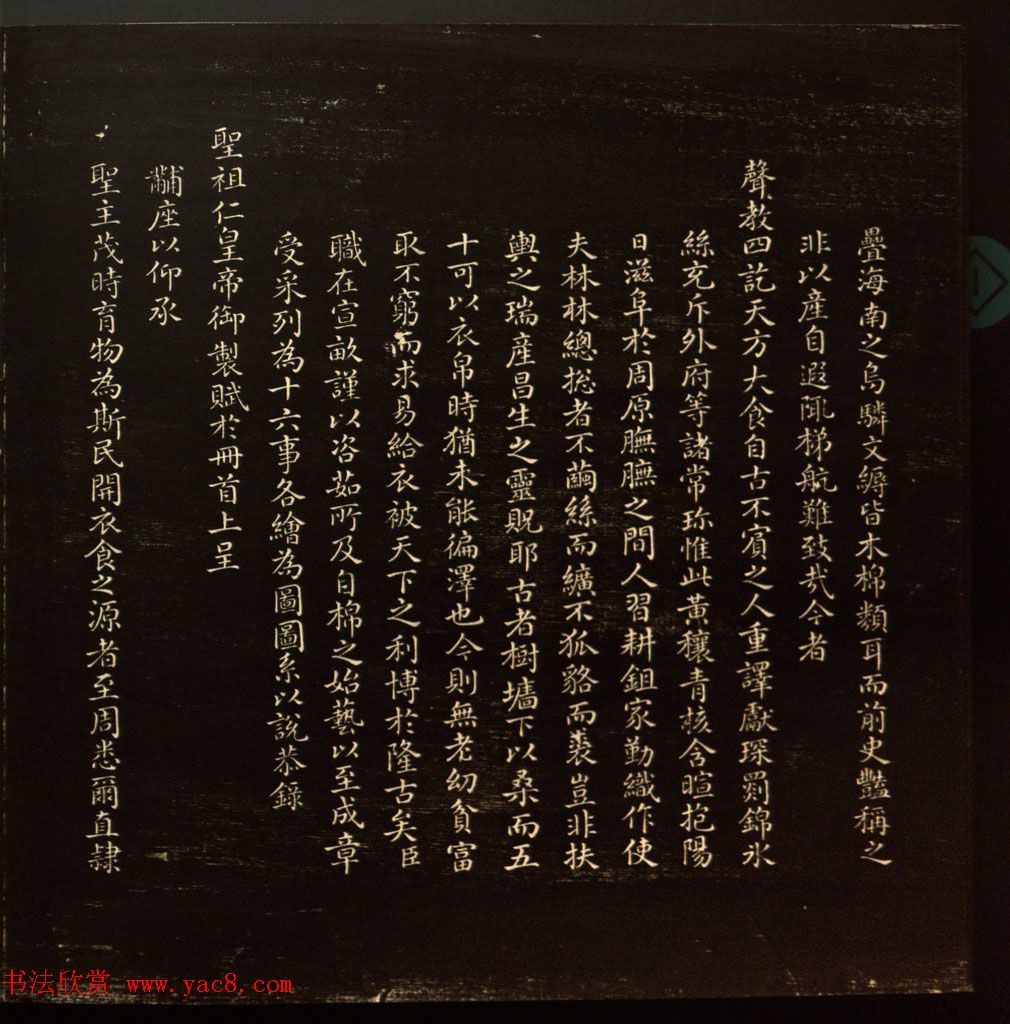 疊海南之烏驎文縟皆木棉類耳而前史豔稱之
非以產自遐陬梯航難致㢤今者
聲教四訖天方大食自古不賓之人重譯獻琛罽錦氷
絲充斥外府等諸常珎惟此黃穰青核含暄抱陽
日滋阜於周原膴膴之間人習耕鉏家勤織作使
夫林林總揔者不繭絲而纊不狐貉而裘豈非扶
輿之瑞產昌生之靈貺耶古者樹墻下以桑而五
十可以衣帛時猶未能徧澤也今則無老幼貧富
取不窮而求易給衣被天下之利博於隆古矣臣
職在宣畝謹以咨茹所及自棉之始藝以至成章
受采列為十六事各繪為圖圖系以說恭錄
聖祖仁皇帝御製賦於冊首上呈
黼座以仰承
聖主茂時育物為斯民開衣食之源者至周悉爾直隸
书法欣赏 www.yac8.com